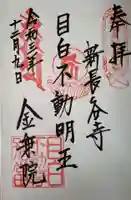 奉拝
新長谷寺
目白不動明王
金乗院
令和三年
十二月九日